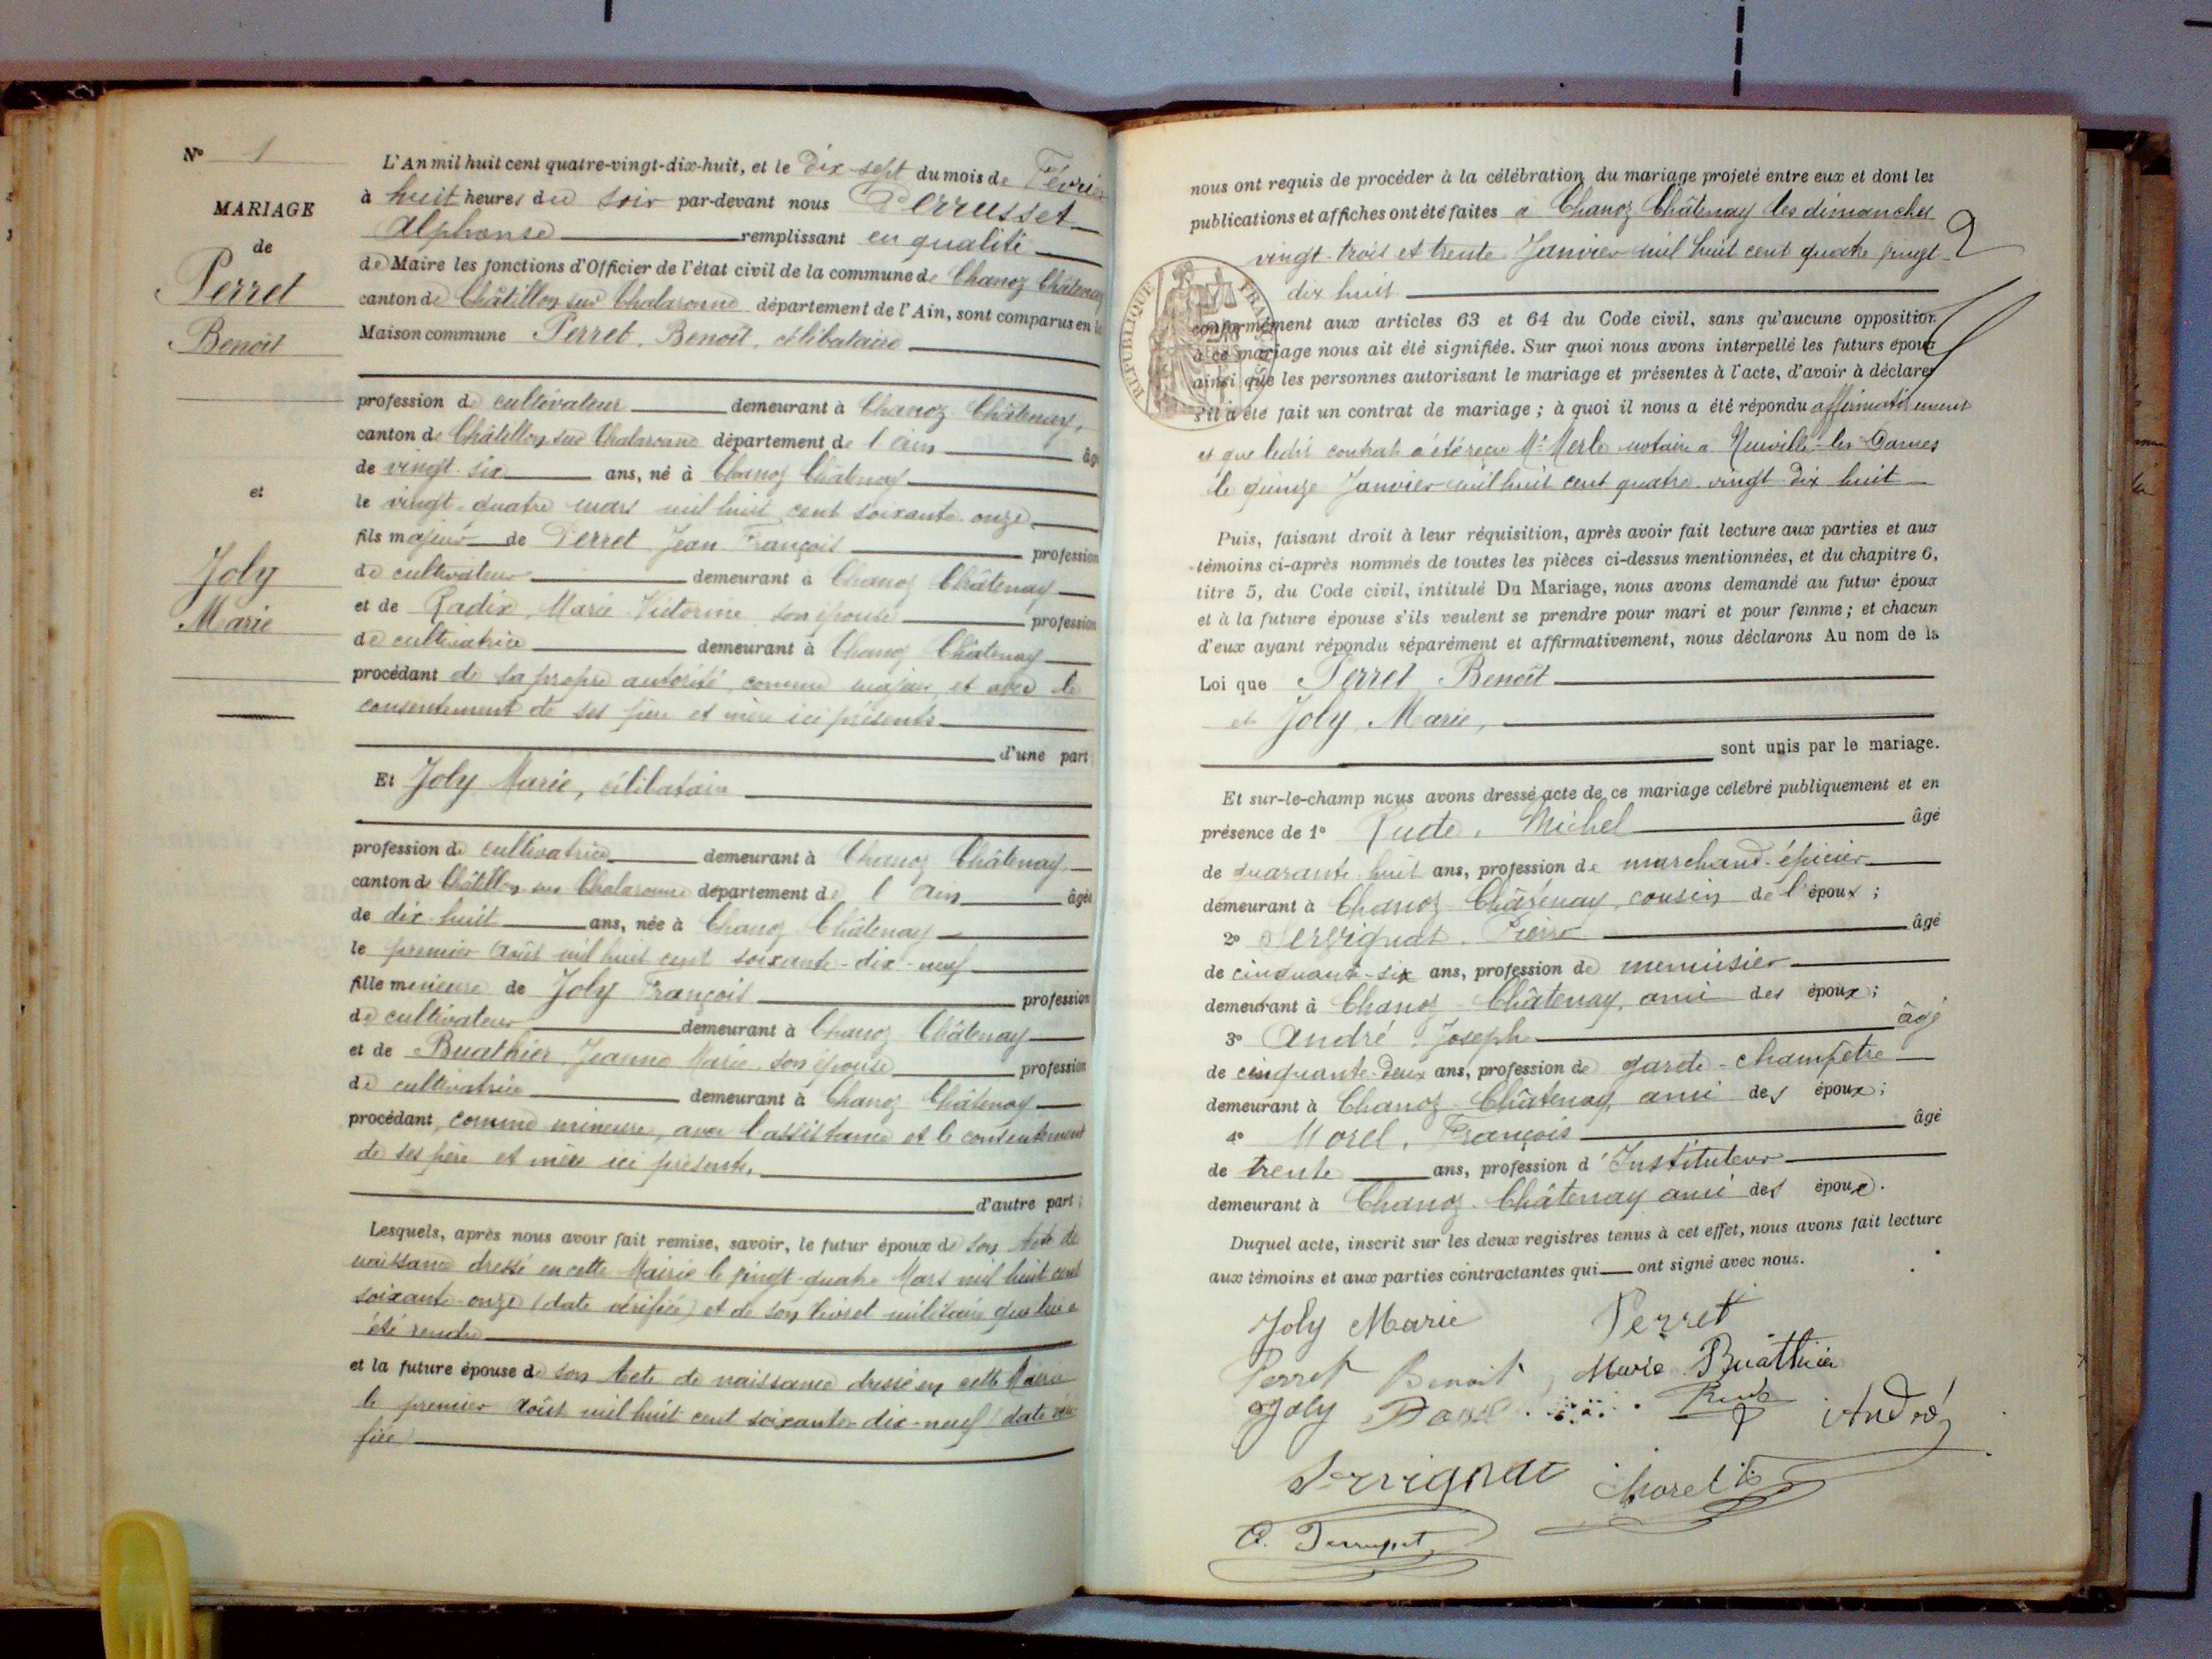 N° 1
MARIAGE
de
Perret
Benoît
et
Joly
Marie
L'An mil huit cent quatre-vingt-dix-huit, et le Dix sept du mois de Février
à huit heures du soir par-devant nous Perrusset
Alphonse remplissant en qualité
de Maire les fonctions d'Officier de l'état civil de la commune de Chanoz Châtenay
canton de Châtillon sur Chalaronne département de l'Ain, sont comparus en la
Maison commune Perret, Benoît, célibataire
profession de cultivateur demeurant à Chanoz Châtenay,
canton de Châtillon sur Chalaronne département de l'Ain âgé
de vingt-six ans, né à Chanoz Châtenay
le vingt-quatre mars mil huit cent soixante-onze
fils majeur de Perret Jean François profession
de cultivateur demeurant à Chanoz Châtenay
et de Radix, Marie Victorine son épouse profession
de cultivatrice demeurant à Chanoz Châtenay
procédant de sa propre autorité comme majeur, et avec le
consentement de ses père et mère ici présents
d'une part;
Et Joly Marie, célibataire
profession de cultivatrice demeurant à Chanoz Châtenay
canton de Châtillon sur Chalaronne département de l'Ain âgée
de dix-huit ans, née à Chanoz Châtenay
le premier Août mil huit cent soixante-dix-neuf
fille mineure de Joly François profession
de cultivateur demeurant à Chanoz Châtenay
et de Buathier Jeanne Marie, son épouse profession
de cultivatrice demeurant à Chanoz Châtenay
procédant, comme mineure, avec l'assistance et le consentement
de ses père et mère ici présents,
d'autre part;
Lesquels, après nous avoir fait remise, savoir, le futur époux de son Acte de
naissance dressé en cette Mairie le vingt-quatre Mars mil huit cent
soixante-onze (date vérifiée) et de son livret militaire qui lui a
été rendu
et la future épouse de son Acte de naissance dressé en cette Mairie
le premier Août mil huit cent soixante-dix-neuf (date véri
fiée)
nous ont requis de procéder à la célébration du mariage projeté entre eux et dont les
publications et affiches ont été faites à Chanoz Châtenay les dimanches
vingt-trois et trente Janvier mil huit cent quatre vingt
dix huit
RÉPUBLIQUE FRANÇAISE
conformément aux articles 63 et 64 du Code civil, sans qu'aucune opposition
à ce mariage nous ait été signifiée. Sur quoi nous avons interpellé les futurs époux
ainsi que les personnes autorisant le mariage et présentes à l'acte, d'avoir à déclarer
s'il a été fait un contrat de mariage; à quoi il nous a été répondu affirmativement
et que ledit contrat a été reçu Me Merle notaire à Neuville-les-Dames
le quinze Janvier mil huit cent quatre-vingt-dix huit
Puis, faisant droit à leur réquisition, après avoir fait lecture aux parties et aux
témoins ci-après nommés de toutes les pièces ci-dessus mentionnées, et du chapitre 6,
titre 5, du Code civil, intitulé Du Mariage, nous avons demandé au futur époux
et à la future épouse s'ils veulent se prendre pour mari et pour femme; et chacun
d'eux ayant répondu séparément et affirmativement, nous déclarons Au nom de la
Loi que Perret Benoît
et Joly Marie,
sont unis par le mariage.
Et sur-le-champ nous avons dressé acte de ce mariage célébré publiquement et en
présence de 1° Michel âgé
de quarante-huit ans, profession de marchand-épicier
demeurant à Chanoz-Châtenay, cousin de l'époux;
2° Servignat, Pierre âgé
de cinquante-six ans, profession de menuisier
demeurant à Chanoz-Châtenay, ami des époux;
3° André Joseph âgé
de cinquante-deux ans, profession de garde-champêtre
demeurant à Chanoz-Châtenay, ami des époux;
4° Morel, François âgé
de trente ans, profession d'Instituteur
demeurant à Chanoz-Châtenay ami des époux.
Duquel acte, inscrit sur les deux registres tenus à cet effet, nous avons fait lecture
aux témoins et aux parties contractantes qui ont signé avec nous.
Joly Marie Perret
Perret Benoit Marie Buathier
Joly André
Servignat Morel
A. Perrusset